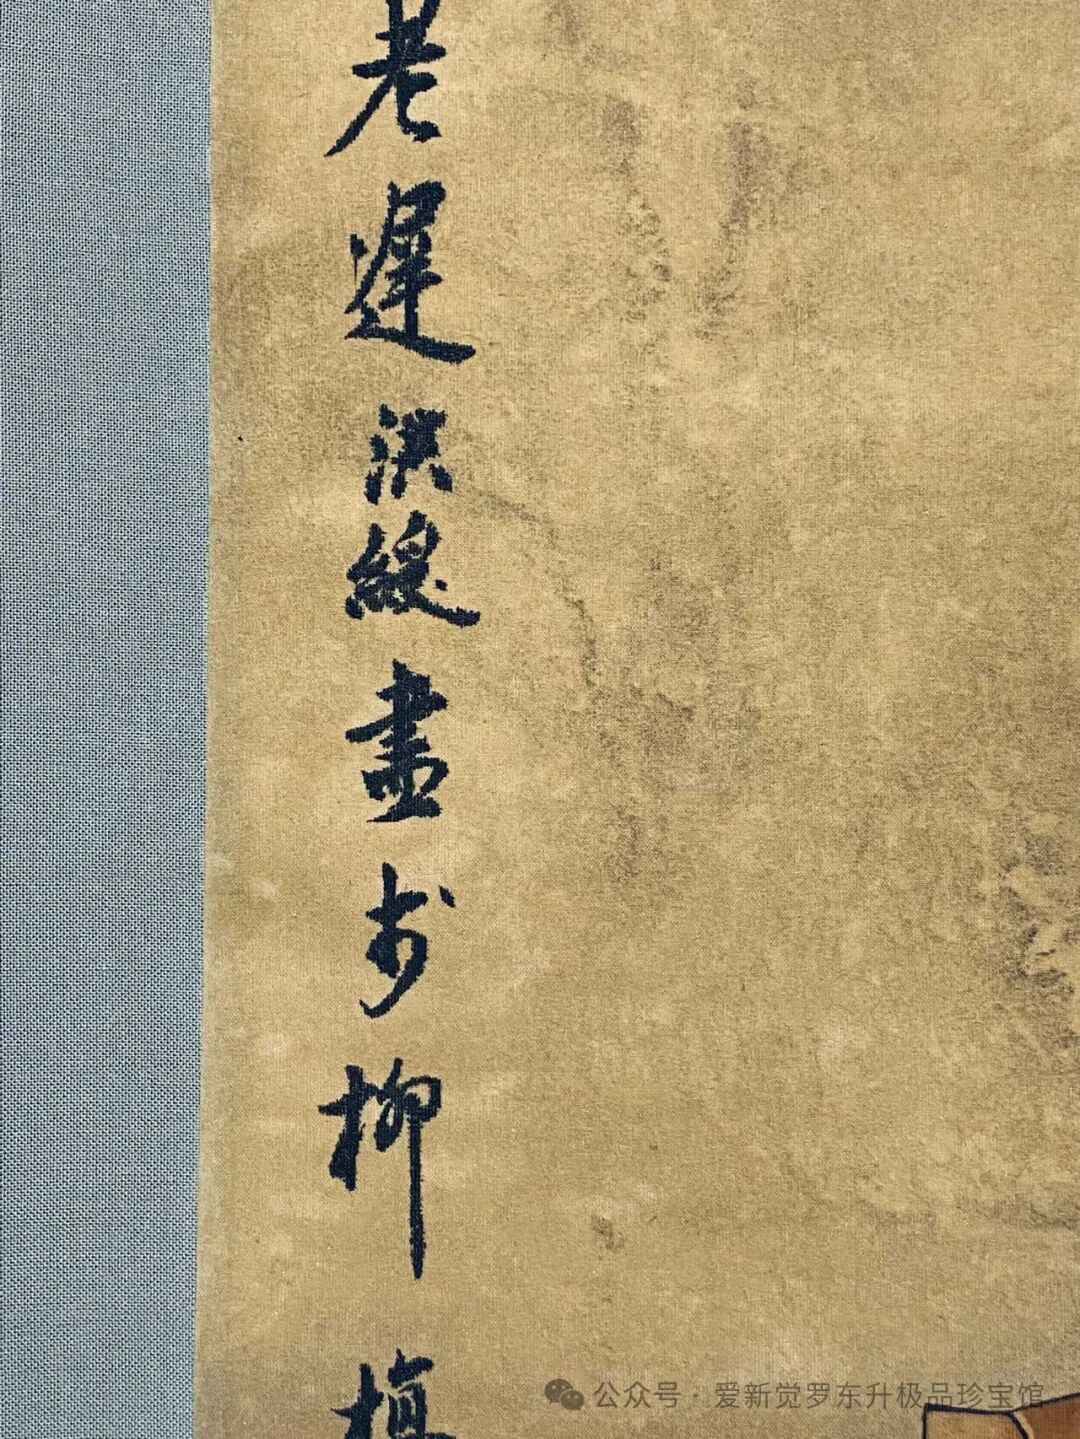 老遲洪綬畫於柳
公众号·爱新觉罗东升极品珍宝馆